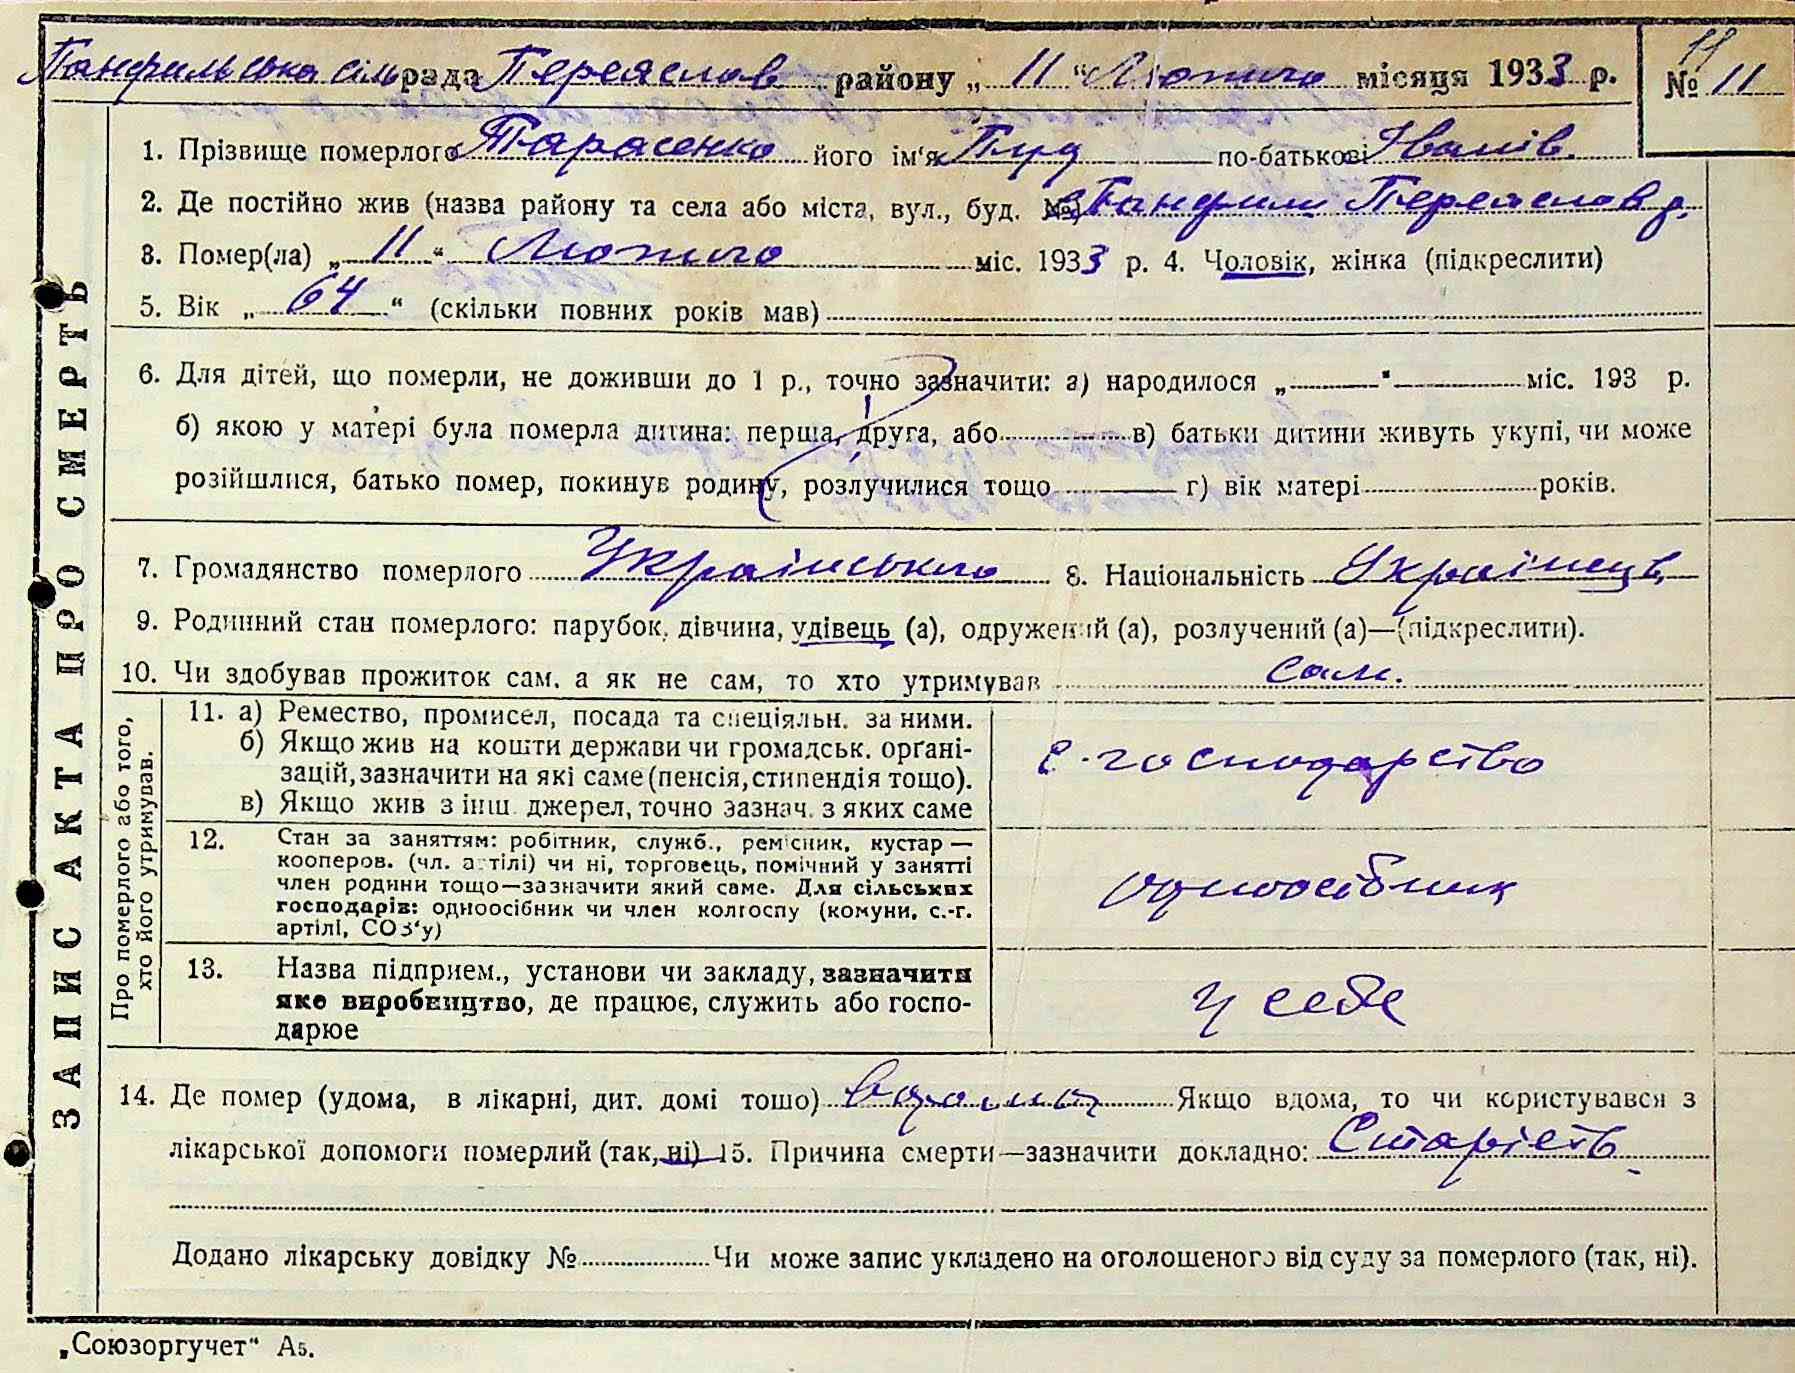 Панфильська сільрада Переяслав району „ 11 “ Лютого місяця 1933 р.
11
№ 11
ЗАПИС АКТА ПРО СМЕРТЬ
1. Прізвище померлого Тарасенко його ім'я по-батькові Іванів.
2. Де постійно жив (назва району та села або міста, вул., буд. №) Панфили Переяслав р.
3. Помер(ла) „ 11 “ Лютого міс. 1933 р. 4. Чоловік, жінка (підкреслити)
5. Вік „ 64 “ (скільки повних років мав)
6. Для дітей, що померли, не доживши до 1 р., точно зазначити: а) народилося „ “ міс. 193 р.
б) якою у матері була померла дитина: перша, друга, або в) батьки дитини живуть укупі, чи може
розійшлися, батько помер, покинув родину, розлучилися тощо г) вік матері років.
7. Громадянство померлого Українського 8. Національність Українець
9. Родинний стан померлого: парубок, дівчина, удівець (а), одружений (а), розлучений (а)—(підкреслити).
10. Чи здобував прожиток сам, а як не сам, то хто утримував сам.
Про померлого або того,
хто його утримував.
11. а) Ремество, промисел, посада та спеціяльн. за ними.
б) Якщо жив на кошти держави чи громадськ. орґані-
зацій, зазначити на які саме (пенсія, стипендія тощо).
в) Якщо жив з інш. джерел, точно зазнач. з яких саме
с.-господарство
12. Стан за заняттям: робітник, служб., ремісник, кустар —
кооперов. (чл. артілі) чи ні, торговець, помічний у занятті
член родини тощо—зазначити який саме. Для сільських
господарів: одноосібник чи член колгоспу (комуни, с.-г.
артілі, СОЗ'у)
одноосібник
13. Назва підприєм., установи чи закладу, зазначити
яке виробництво, де працює, служить або госпо-
дарює
у себе
14. Де помер (удома, в лікарні, дит. домі тошо) вдома Якщо вдома, то чи користувався з
лікарської допомоги померлий (так, ні) 15. Причина смерти—зазначити докладно: Старість
Додано лікарську довідку № Чи може запис укладено на оголошеного від суду за померлого (так, ні).
„Союзоргучет“ А5.